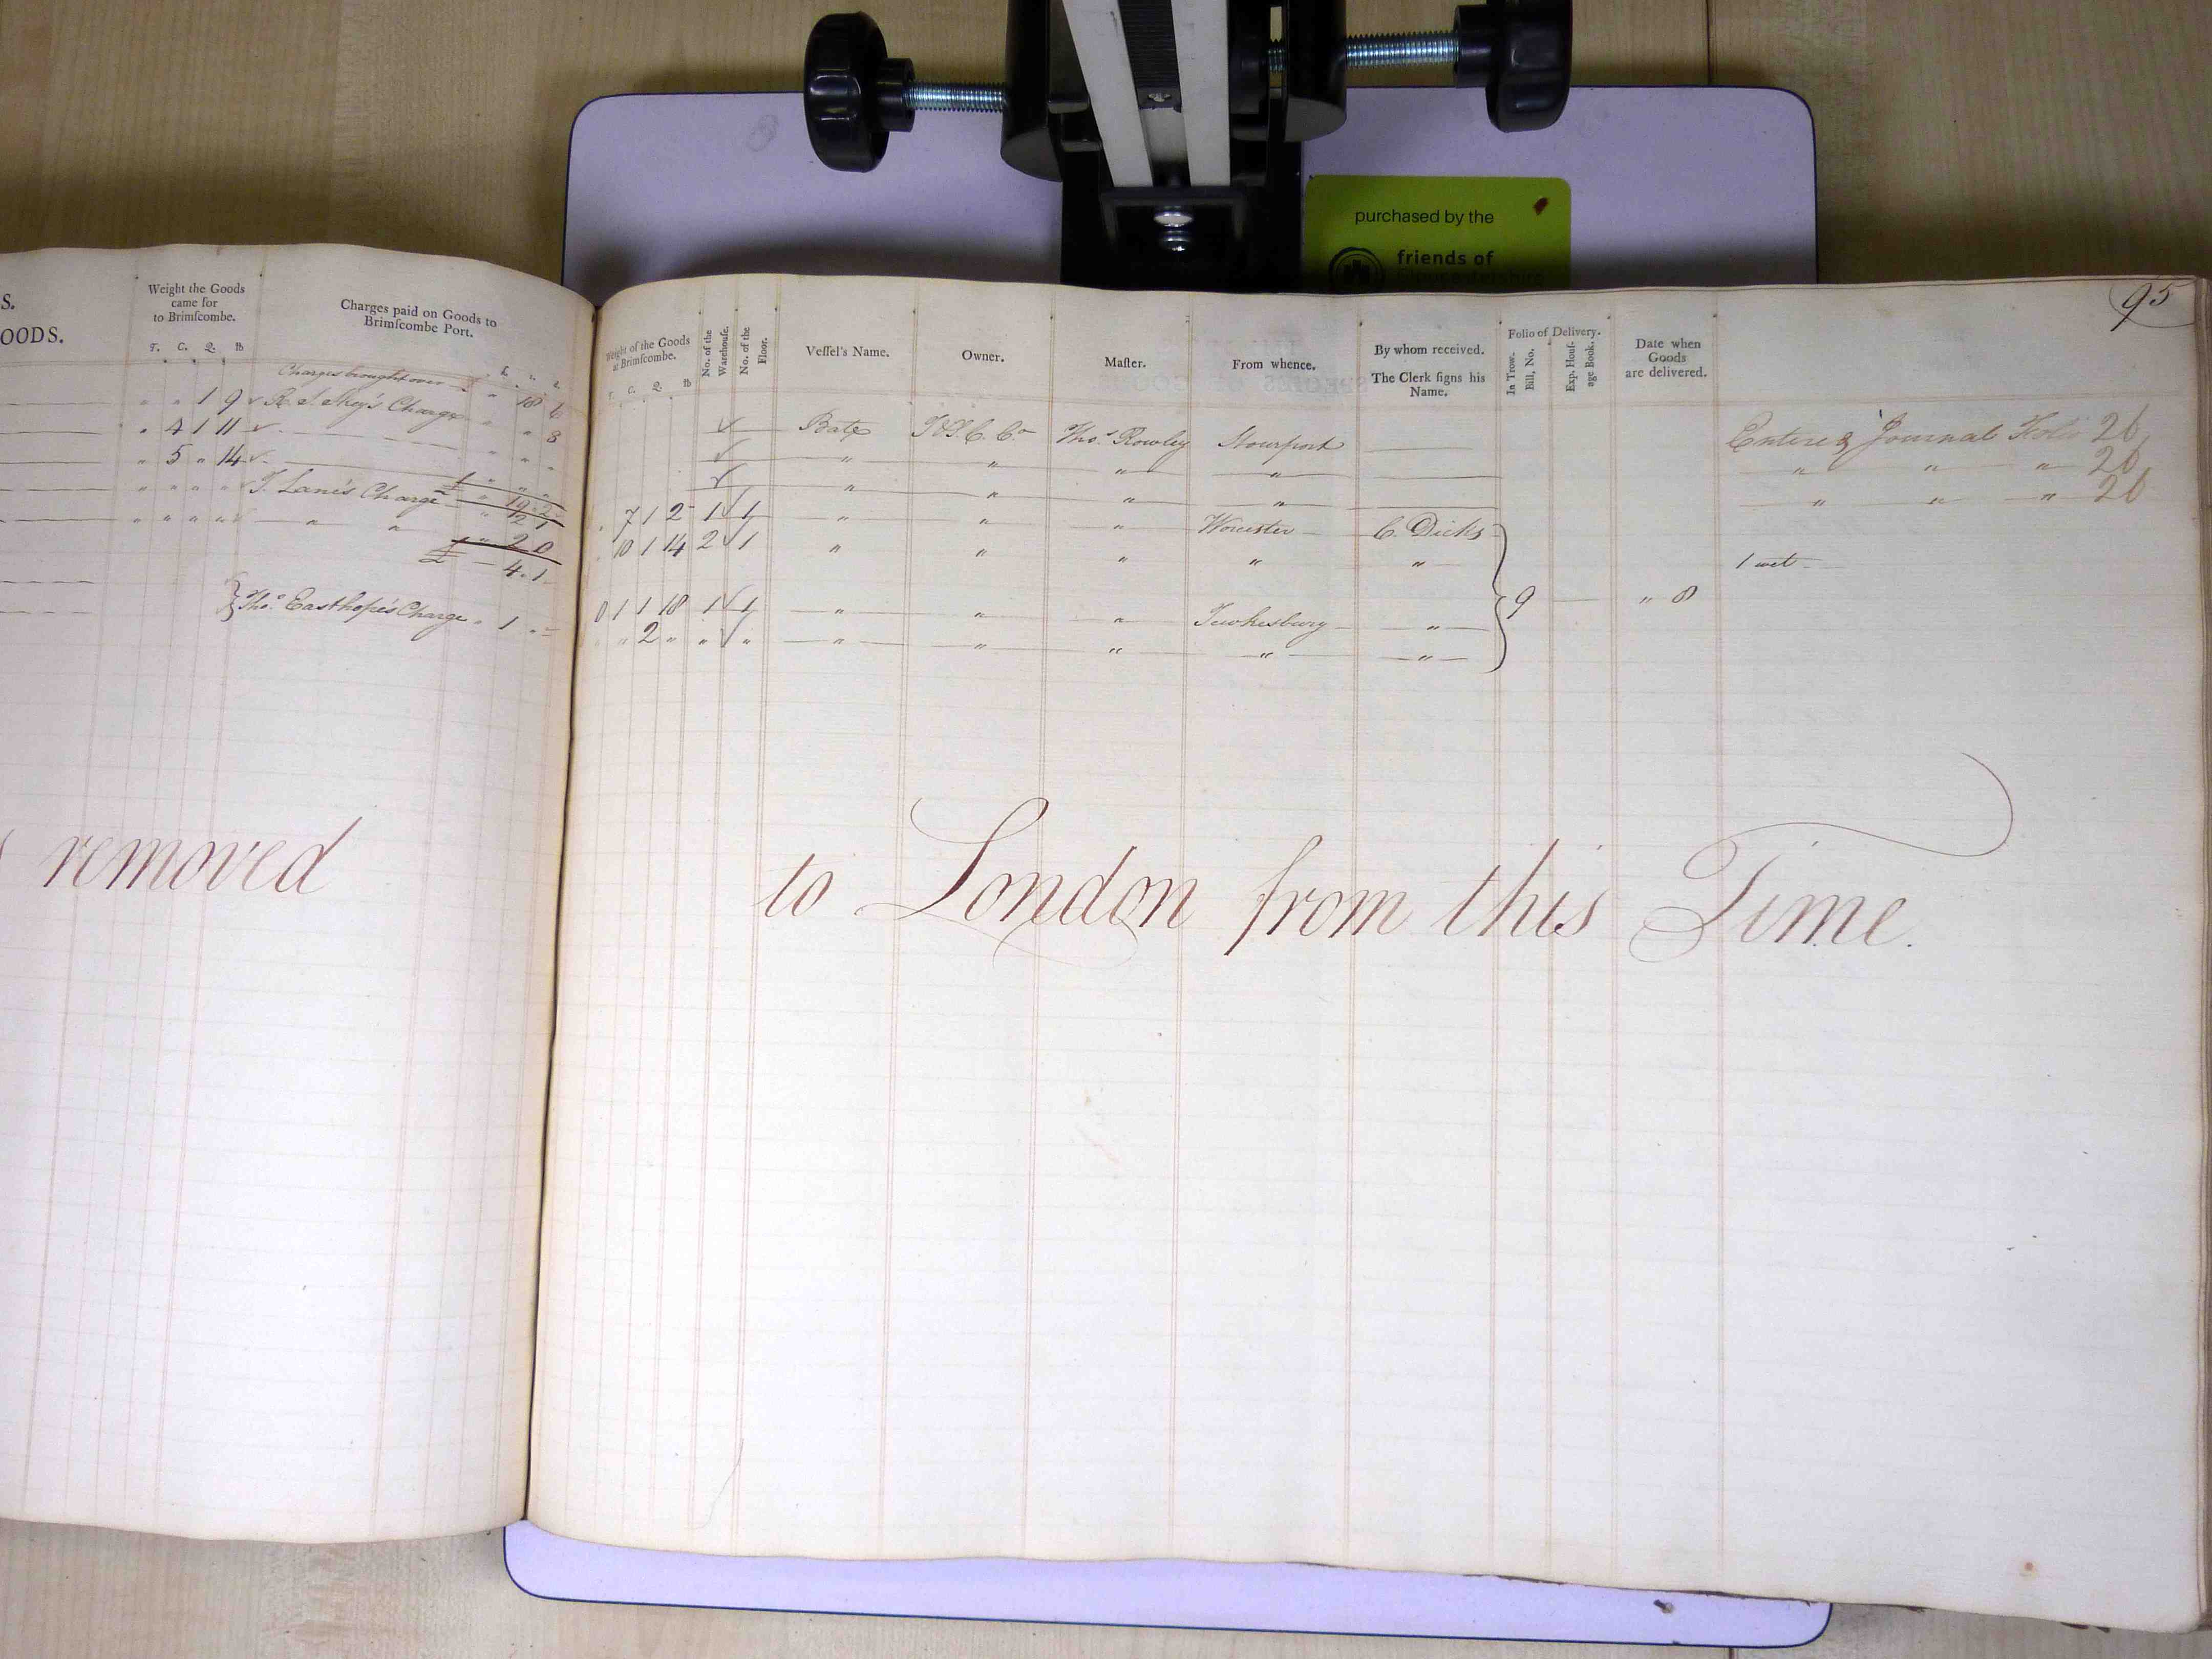 purchased by the
friends of
95
S.
OODS.
Weight the Goods
came for
to Brimſcombe.
T. C. Q. lb
Charges paid on Goods to
Brimſcombe Port.
Charges brought over " 18 6
" " 1 9 R. S. Skey's Charge " " 8
" 4 1 11
" 5 " 14
" " " " T. Lane's Charge
£ - 4. 1
Thos. Easthope's Charge " 1 " -
Weight of the Goods
at Brimſcombe.
T. C. Q. lb
No. of the
Warehouſe.
No. of the
Floor.
Veſſel's Name.
Owner.
Maſter.
From whence.
By whom received.
The Clerk ſigns his
Name.
Folio of Delivery.
In Trow.
Bill, No.
Exp. Houſ-
age Book.
Date when
Goods
are delivered.
Thos. Rowley Stourport Entered Journal Folio 26
" " " " " " 26
" " " " " " 26
" 7 1 2 1 1 " " " Worcester C. Dicks
" 10 1 14 2 1 " " " " " 1 wet
9 " 8
0 1 1 18 1 1 " " " Tewkesbury "
" " 2 " " " " " " " "
removed to London from this Time.